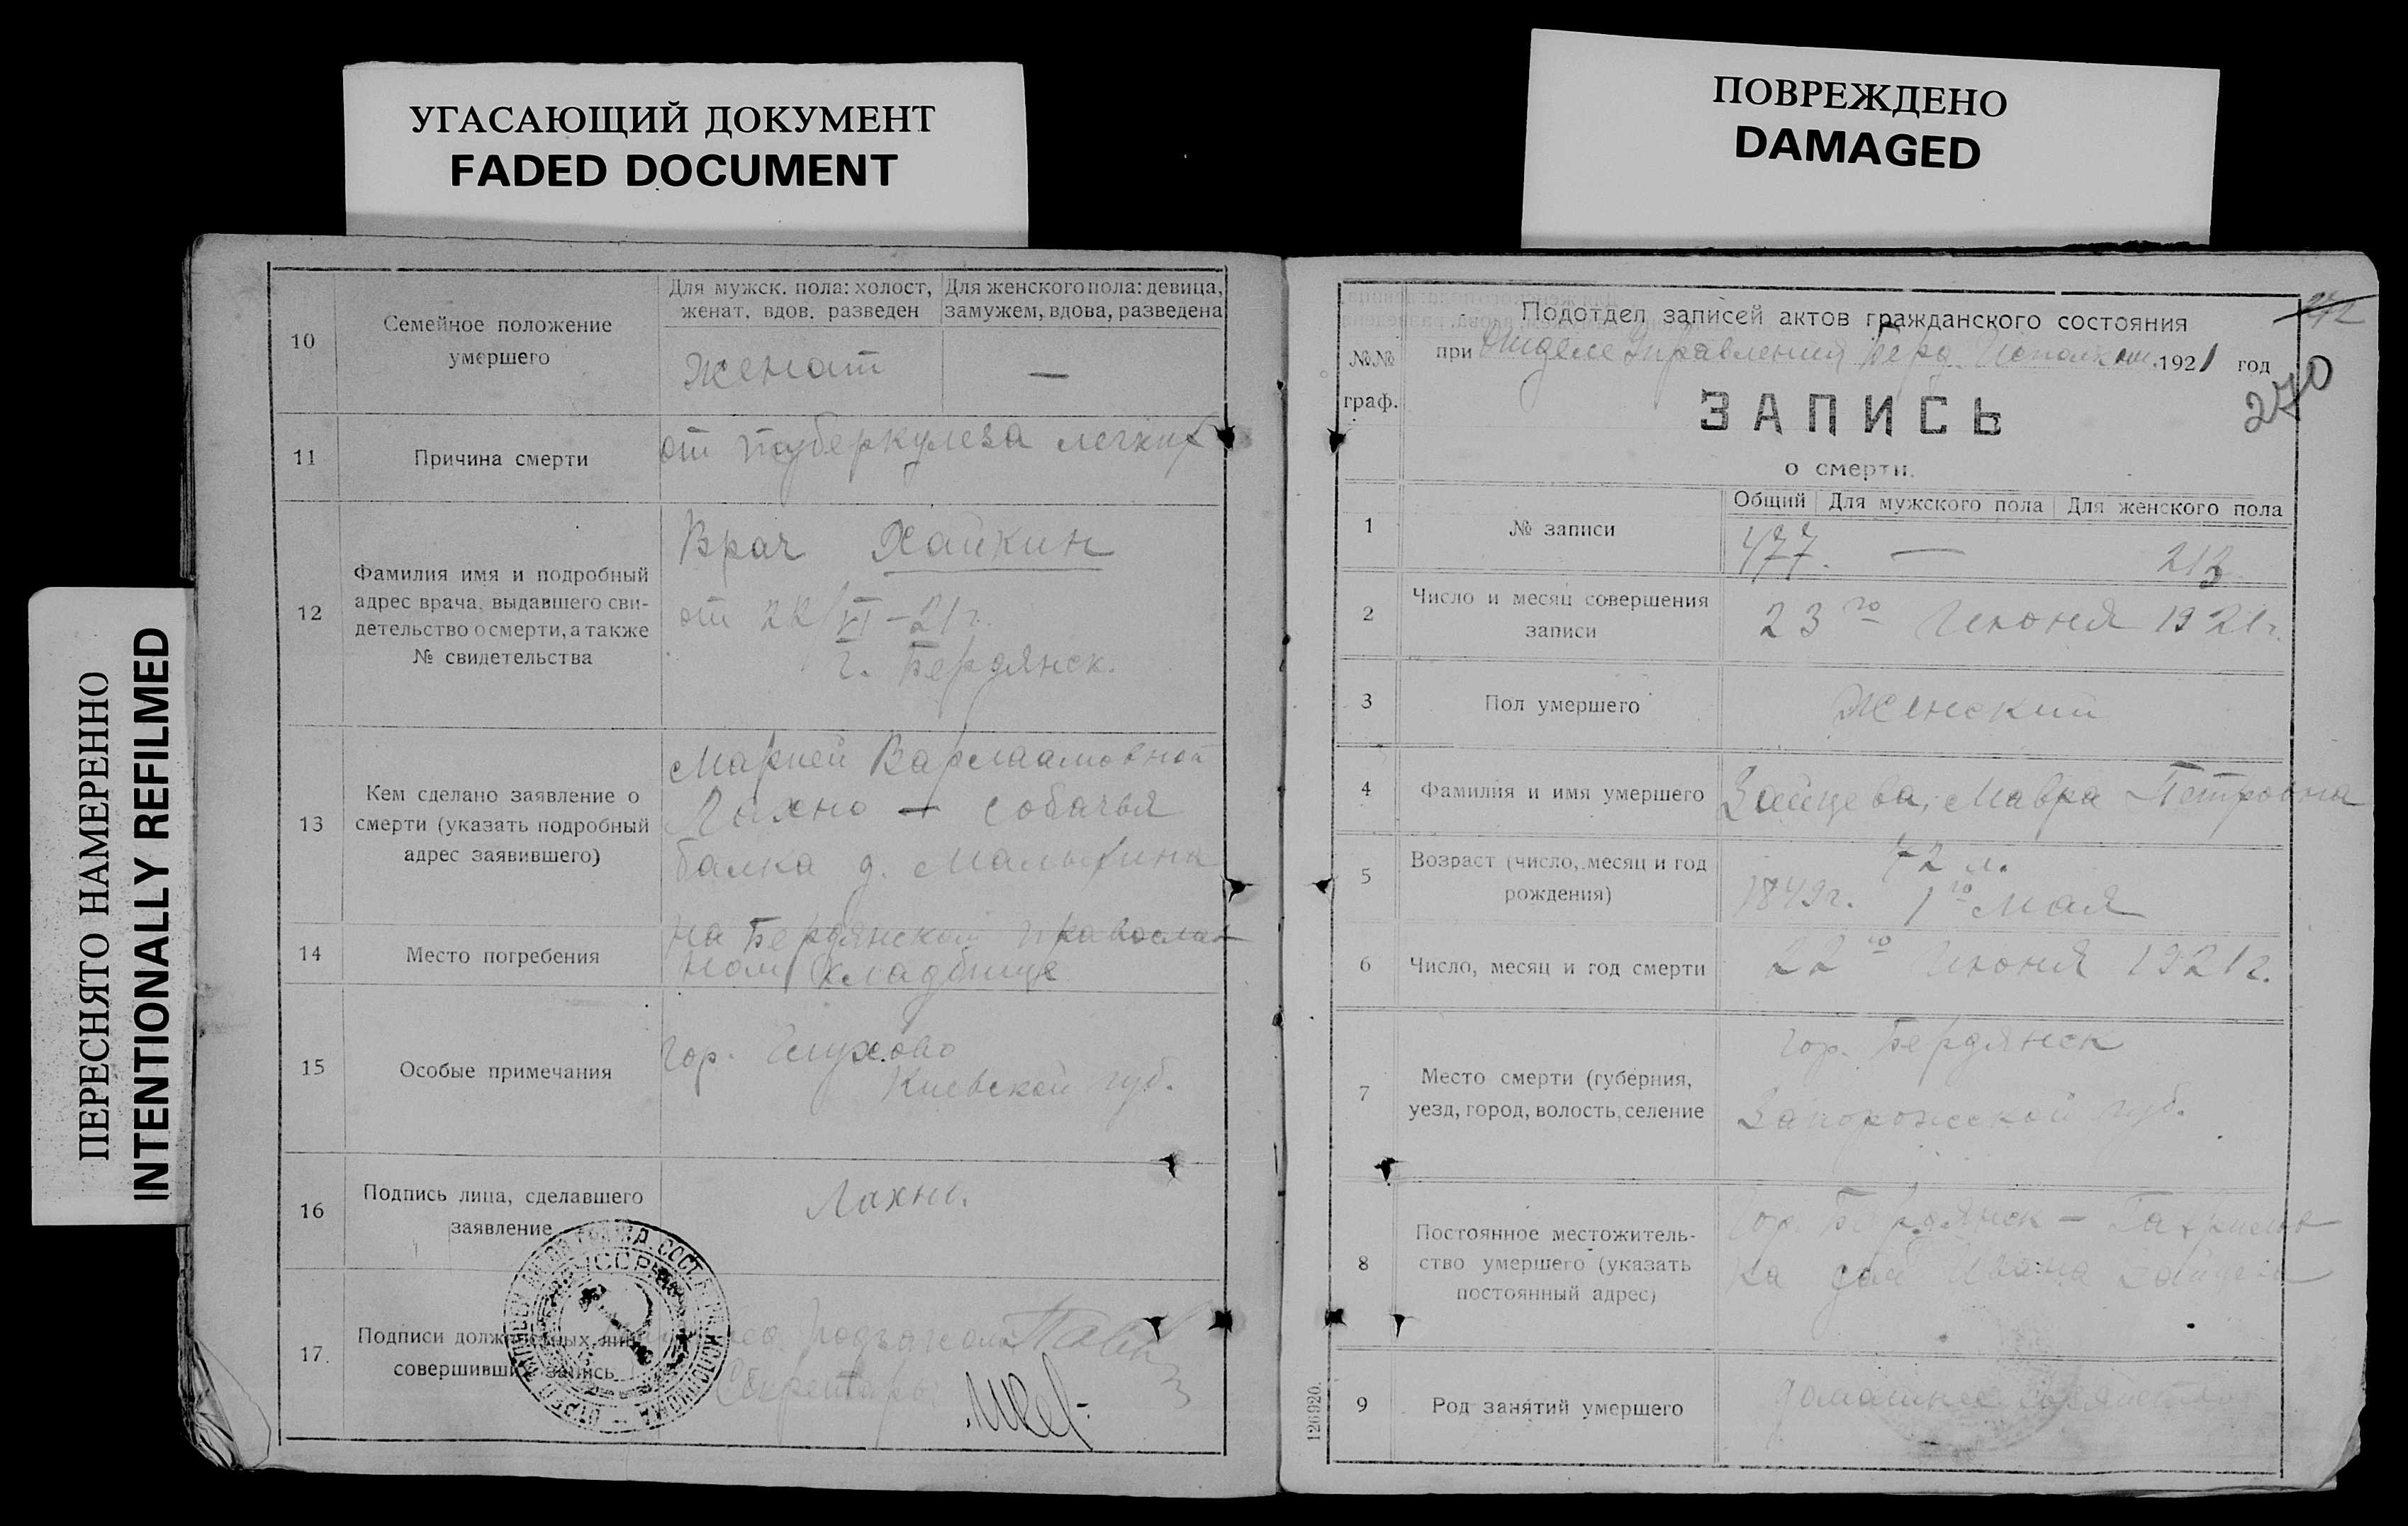 УГАСАЮЩИЙ ДОКУМЕНТ
FADED DOCUMENT
ПОВРЕЖДЕНО
DAMAGED
ПЕРЕСНЯТО НАМЕРЕННО
INTENTIONALLY REFILMED
10
Семейное положение
умершего
Для мужск. пола: холост,
женат, вдов, разведен
Для женского пола: девица,
замужем, вдова, разведена
Женат
—
11
Причина смерти
от туберкулеза легких
12
Фамилия имя и подробный
адрес врача, выдавшего сви-
детельство о смерти, а также
№ свидетельства
Врач Хайкин
от 22/VI-21г.
г. Бердянск.
13
Кем сделано заявление о
смерти (указать подробный
адрес заявившего)
Марией Варлаамовной
Лахно — Собачья
балка д.
14
Место погребения
на Бердянском православ
ном кладбище
15
Особые примечания
гор.
Киевской губ.
16
Подпись лица, сделавшего
заявление
Лахно.
17.
Подписи должностных лиц
совершивших запись
УССР
Секретарь
Подотдел записей актов гражданского состояния
при Отделе Управления Берд. Исполком. 1921 год
№№
граф.
270
ЗАПИСЬ
о смерти.
1
№ записи
Общий
Для мужского пола
Для женского пола
477.
—
213
2
Число и месяц совершения
записи
23го Июня 1921г.
3
Пол умершего
Женский
4
Фамилия и имя умершего
Зайцева, Мавра Петровна
5
Возраст (число, месяц и год
рождения)
72 л.
1849г. 1го Мая
6
Число, месяц и год смерти
22го Июня 1921г.
7
Место смерти (губерния,
уезд, город, волость, селение
гор. Бердянск
Запорожской губ.
8
Постоянное местожитель-
ство умершего (указать
постоянный адрес)
Гор. Бердянск —
Ивана Зайцева
9
Род занятий умершего
домашнее
126920.